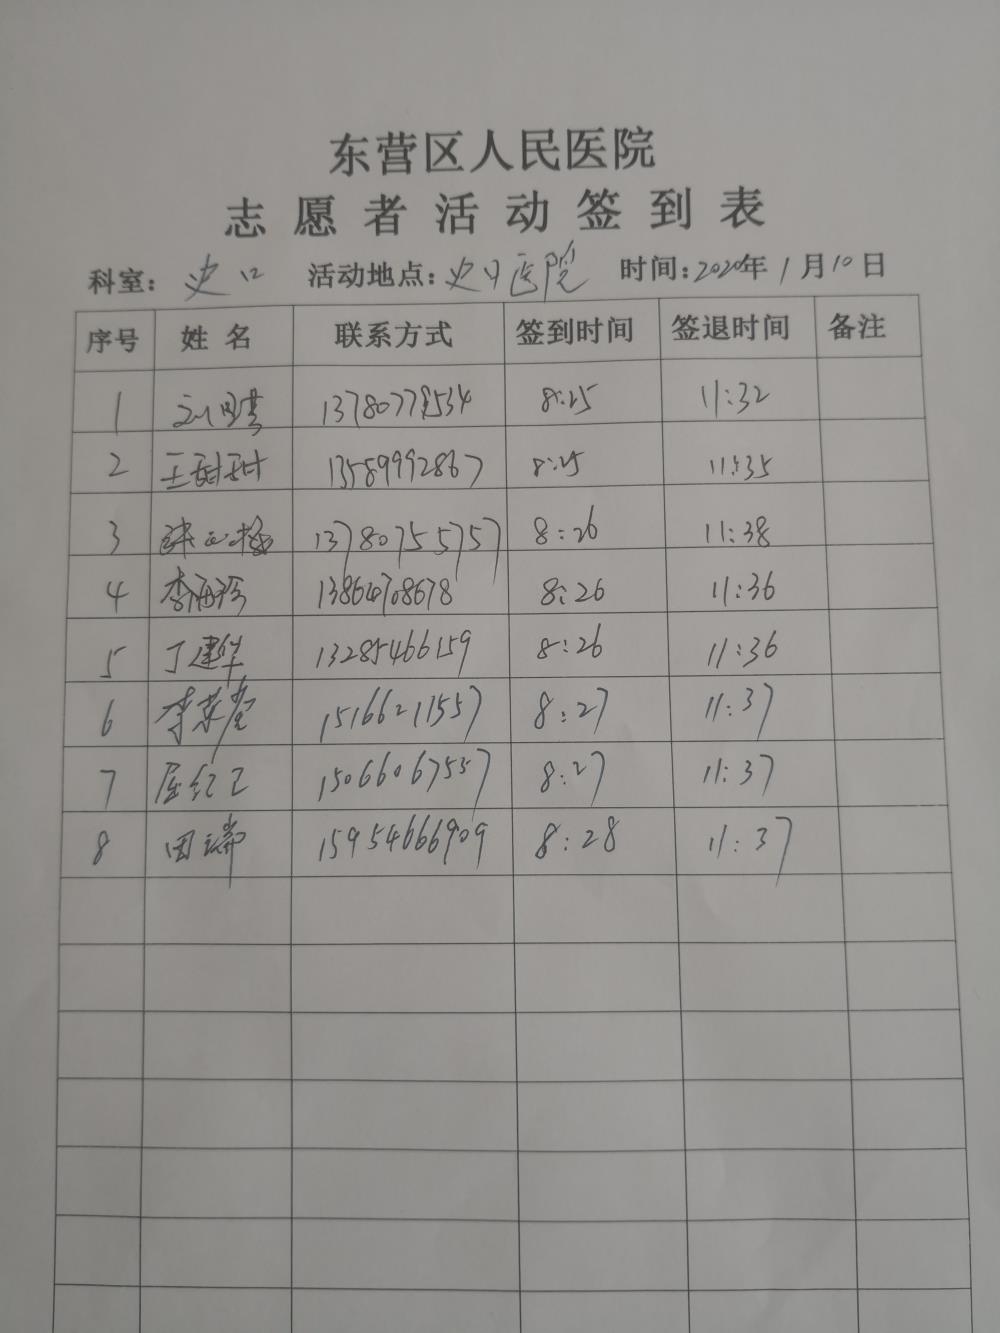 东营区人民医院
志愿者活动签到表
科室: 史口 活动地点: 史口医院 时间: 2020年1月10日
序号 姓名 联系方式 签到时间 签退时间 备注
1 13780779534 8:25 11:32
2 王甜甜 13589992867 8:25 11:35
3 13780755757 8:26 11:38
4 李 13864708678 8:26 11:36
5 丁建华 13285466159 8:26 11:36
6 李荣 15166211557 8:27 11:37
7 屈红卫 15066067557 8:27 11:37
8 田瑞 15954666909 8:28 11:37